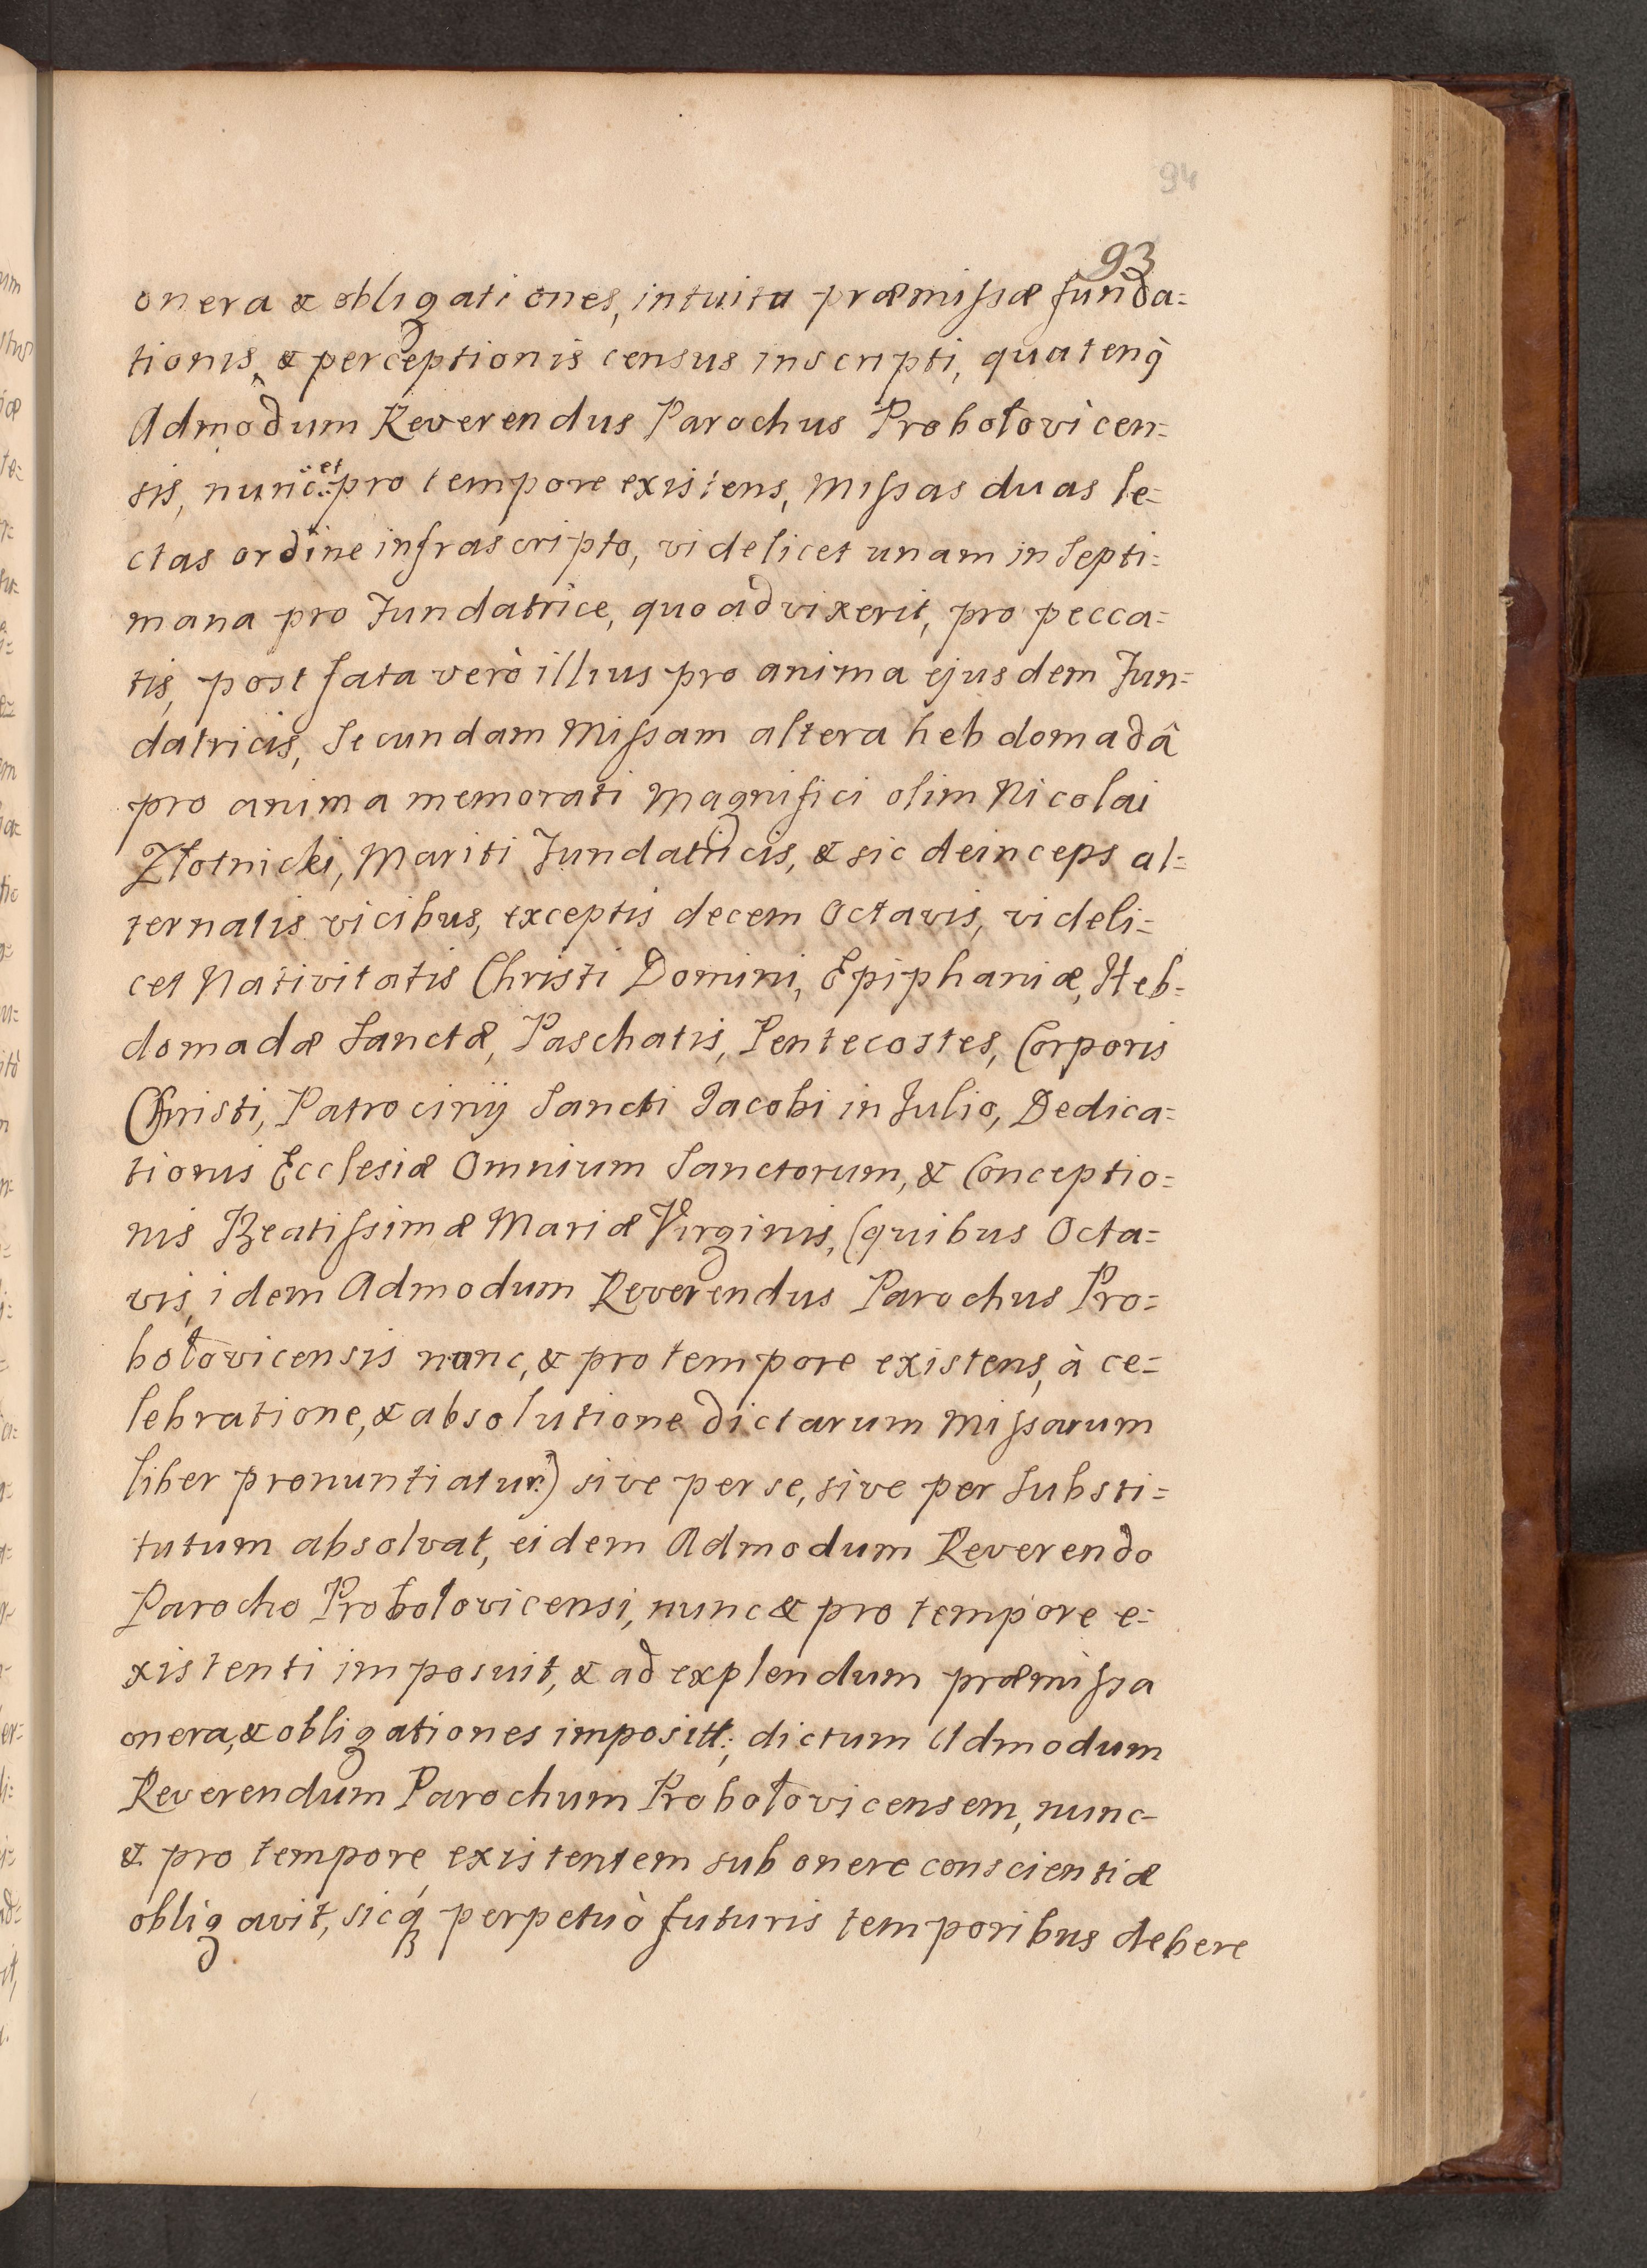 94
93
onera & obligationes, intuitu præmissæ funda=
tionis, & perceptionis census inscripti, quateng
Admodum Reverendus Parochus Probołovicen=
sis, nunc et pro tempore existens, Missas duas le=
ctas ordine infrascripto, videlicet unam in Septi=
mana pro Fundatrice, quoad vixerit, pro pecca=
tis, post fata verò illius pro anima ejusdem Fun=
datricis, Secundam Missam altera hebdomadâ
pro anima memorati Magnifici olim Nicolai
Złotnicki, Mariti Fundatricis, & sic deinceps al=
ternatis vicibus, exceptis decem Octavis, videli=
cet Nativitatis Christi Domini, Epiphaniæ, Heb=
domadæ Sanctæ, Paschatis, Pentecostes, Corporis
Christi, Patrocinij Sancti Jacobi in Julio, Dedica=
tionis Ecclesiæ Omnium Sanctorum, & Conceptio=
nis Beatissimæ Mariæ Virginis, (quibus Octa=
vis, idem Admodum Reverendus Parochus Pro=
bołovicensis nunc, & pro tempore existens, à ce=
lebratione, & absolutione dictarum Missarum
liber pronuntiatur:) sive per se, sive per Substi=
tutum absolvat, eidem Admodum Reverendo
Parocho Probołovicensi, nunc & pro tempore e=
xistenti imposuit, & ad explendum præmissa
onera, & obligationes impositt:, dictum Admodum
Reverendum Parochum Probołovicensem, nunc
& pro tempore existentem sub onere conscientiæ
obligavit, sicq́ꝫ perpetuò futuris temporibus debere